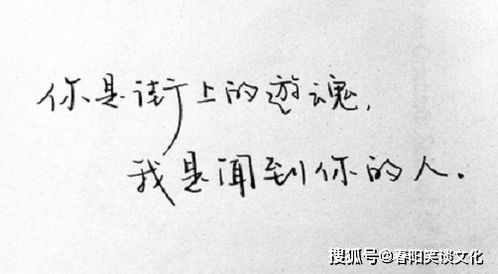 你是街上的遊魂，
我是闻到你的人.
搜狐号@春阳笑谈文化